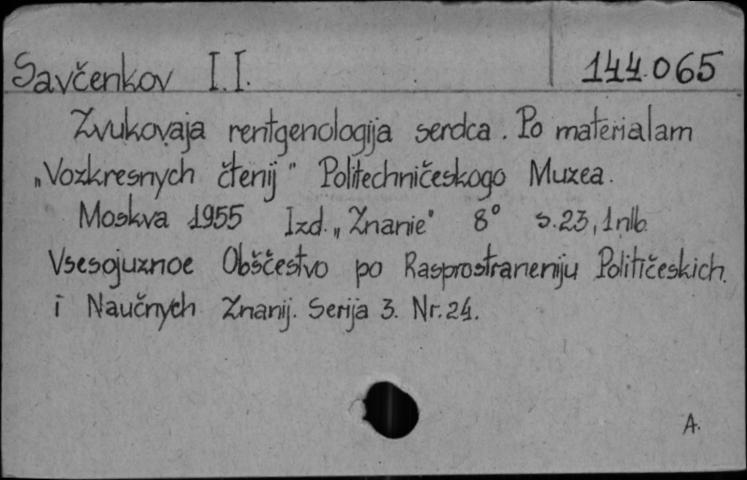 Savčenkov I.I. 144.065
Zvukovaja rentgenologija serdca. Po materialam
„Vozkresnych čtenij" Politechničeskogo Muzea.
Moskva 1955 Izd. „Znanie" 8° s.23, 1nlb.
Vsesojuznoe Obščestvo po Rasprostraneniju Političeskich.
i Naučnych Znanij. Serija 3. Nr.24.
A.